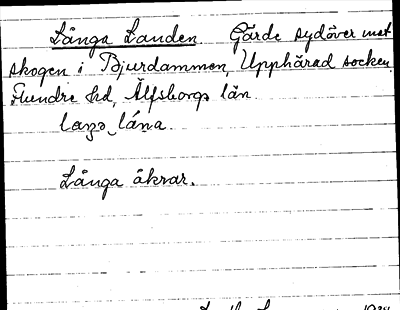 Långa Landen. Gärde sydöver mot
skogen i Bjurdammen, Upphärad socken
Flundre hd, Älfsborgs län.
lána.
Långa åkrar.